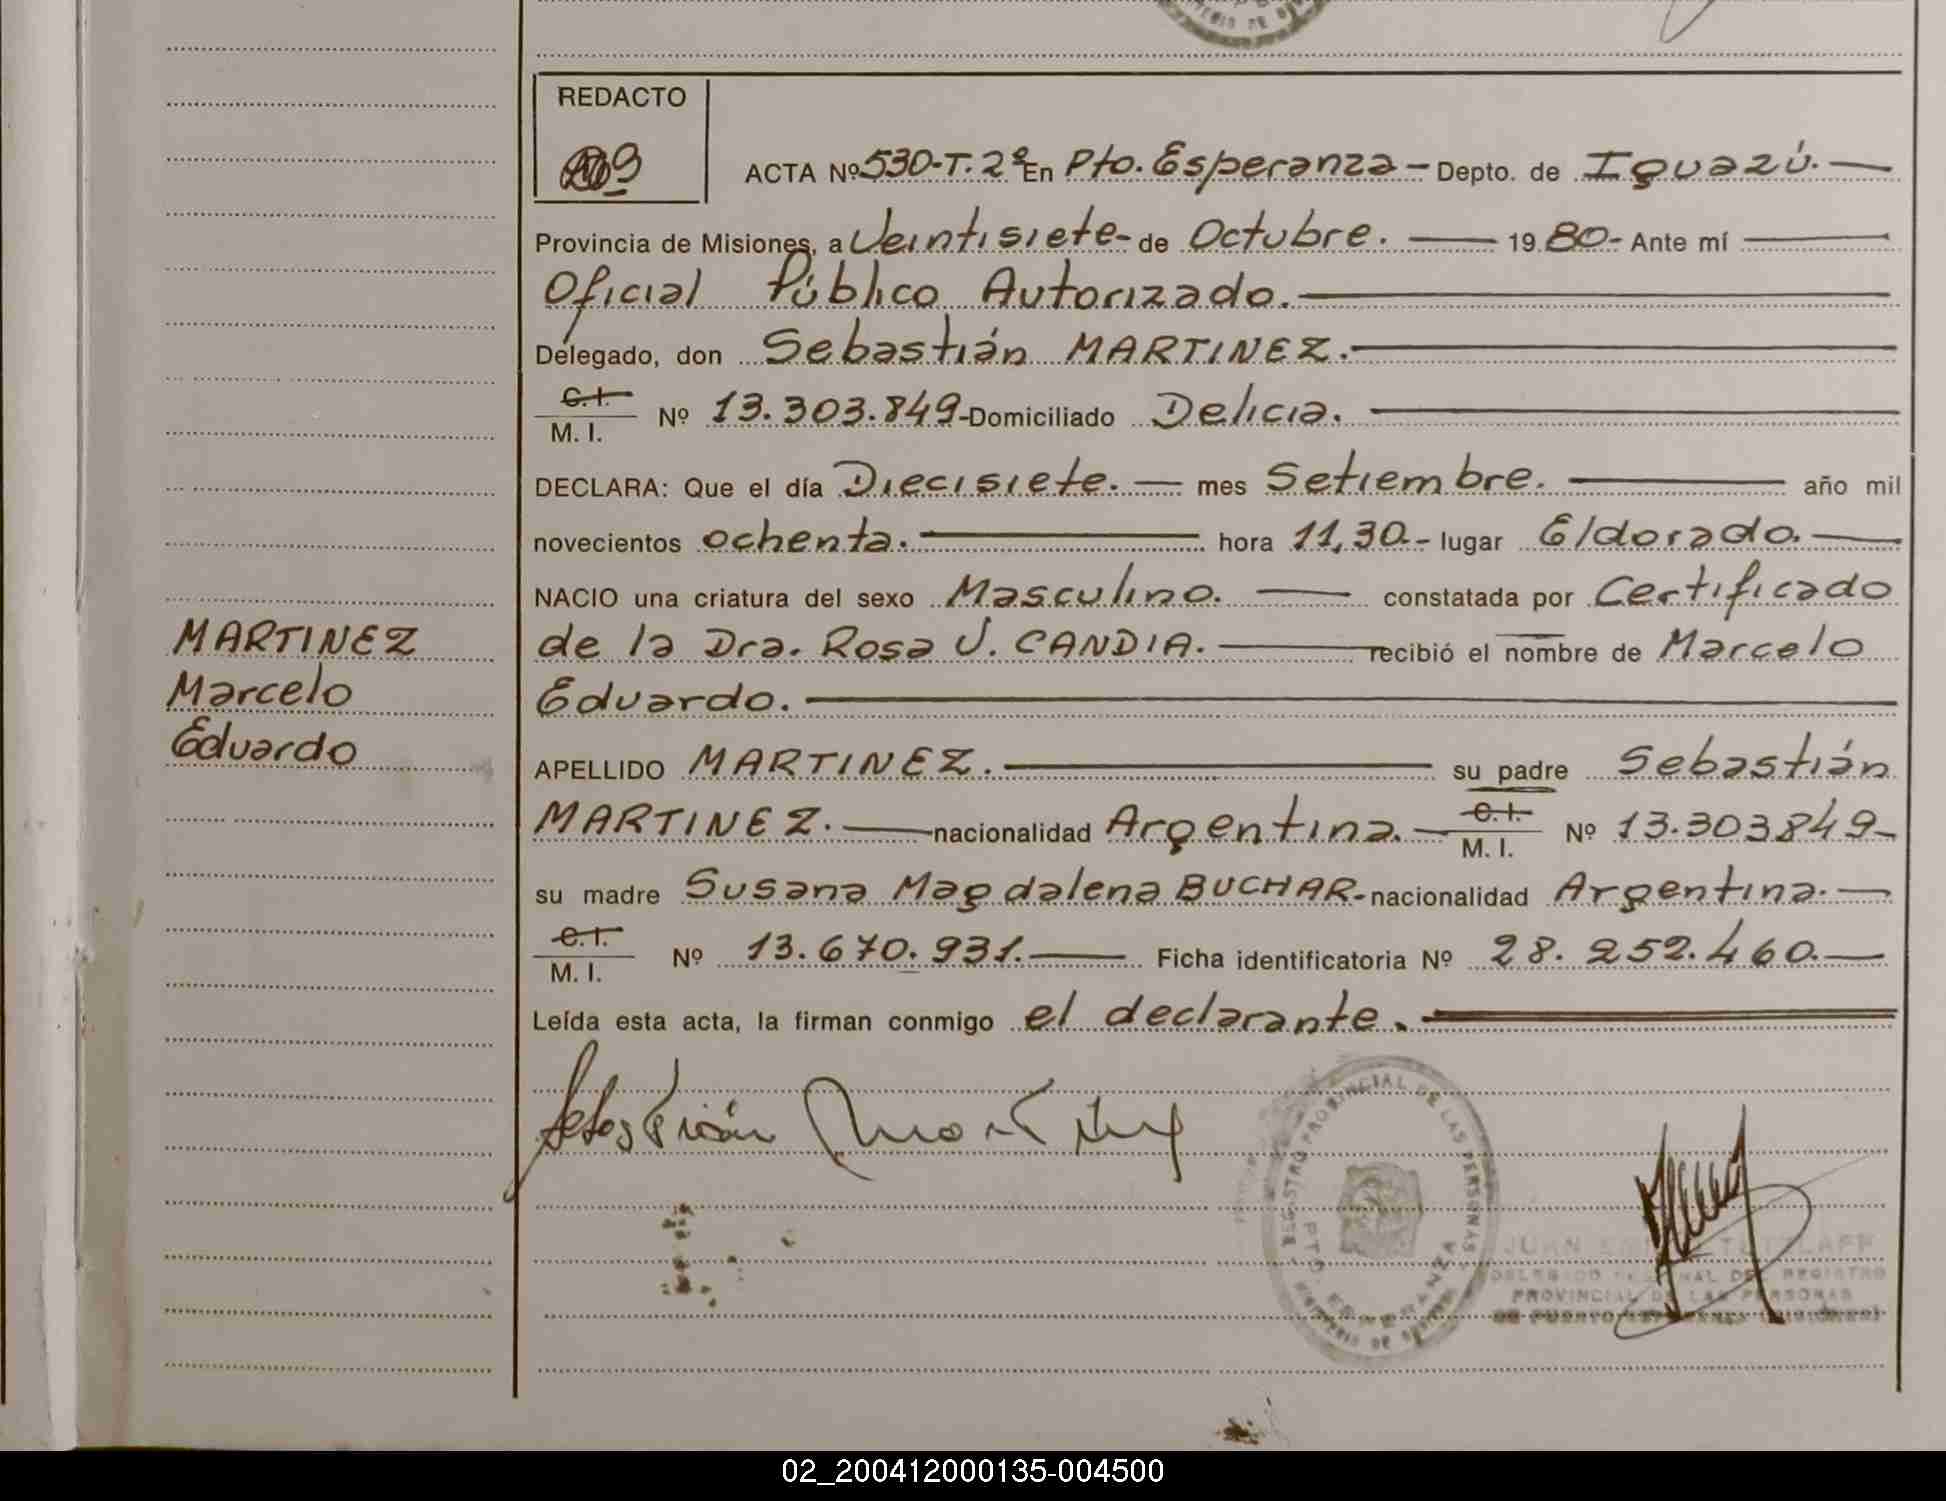 REDACTO
ACTA Nº 530-T. 2º En Pto. Esperanza - Depto. de Iguazú.
Provincia de Misiones, a Veintisiete - de Octubre. 19 80.- Ante mí
Oficial Público Autorizado.
Delegado, don Sebastián MARTINEZ.
C. I.
M. I. Nº 13.303.849- Domiciliado Delicia.
DECLARA: Que el día Diecisiete. mes Setiembre. año mil
novecientos ochenta. hora 11,30.- lugar Eldorado.
NACIO una criatura del sexo Masculino. constatada por Certificado
MARTINEZ
Marcelo
Eduardo
de la Dra. Rosa U. CANDIA. recibió el nombre de Marcelo
Eduardo.
APELLIDO MARTINEZ. su padre Sebastián
MARTINEZ. nacionalidad Argentina. C. I. M. I. Nº 13.303849-
su madre Susana Magdalena BUCHAR- nacionalidad Argentina.
C. I.
M. I. Nº 13.670.931. Ficha identificatoria Nº 28.252.460.
Leída esta acta, la firman conmigo el declarante.
Sebastián Martinez
REGISTRO PROVINCIAL DE LAS PERSONAS
PTO. ESPERANZA
JUAN
DELEGADO DEL REGISTRO
PROVINCIAL DE LAS PERSONAS
DE PUERTO
02_200412000135-004500